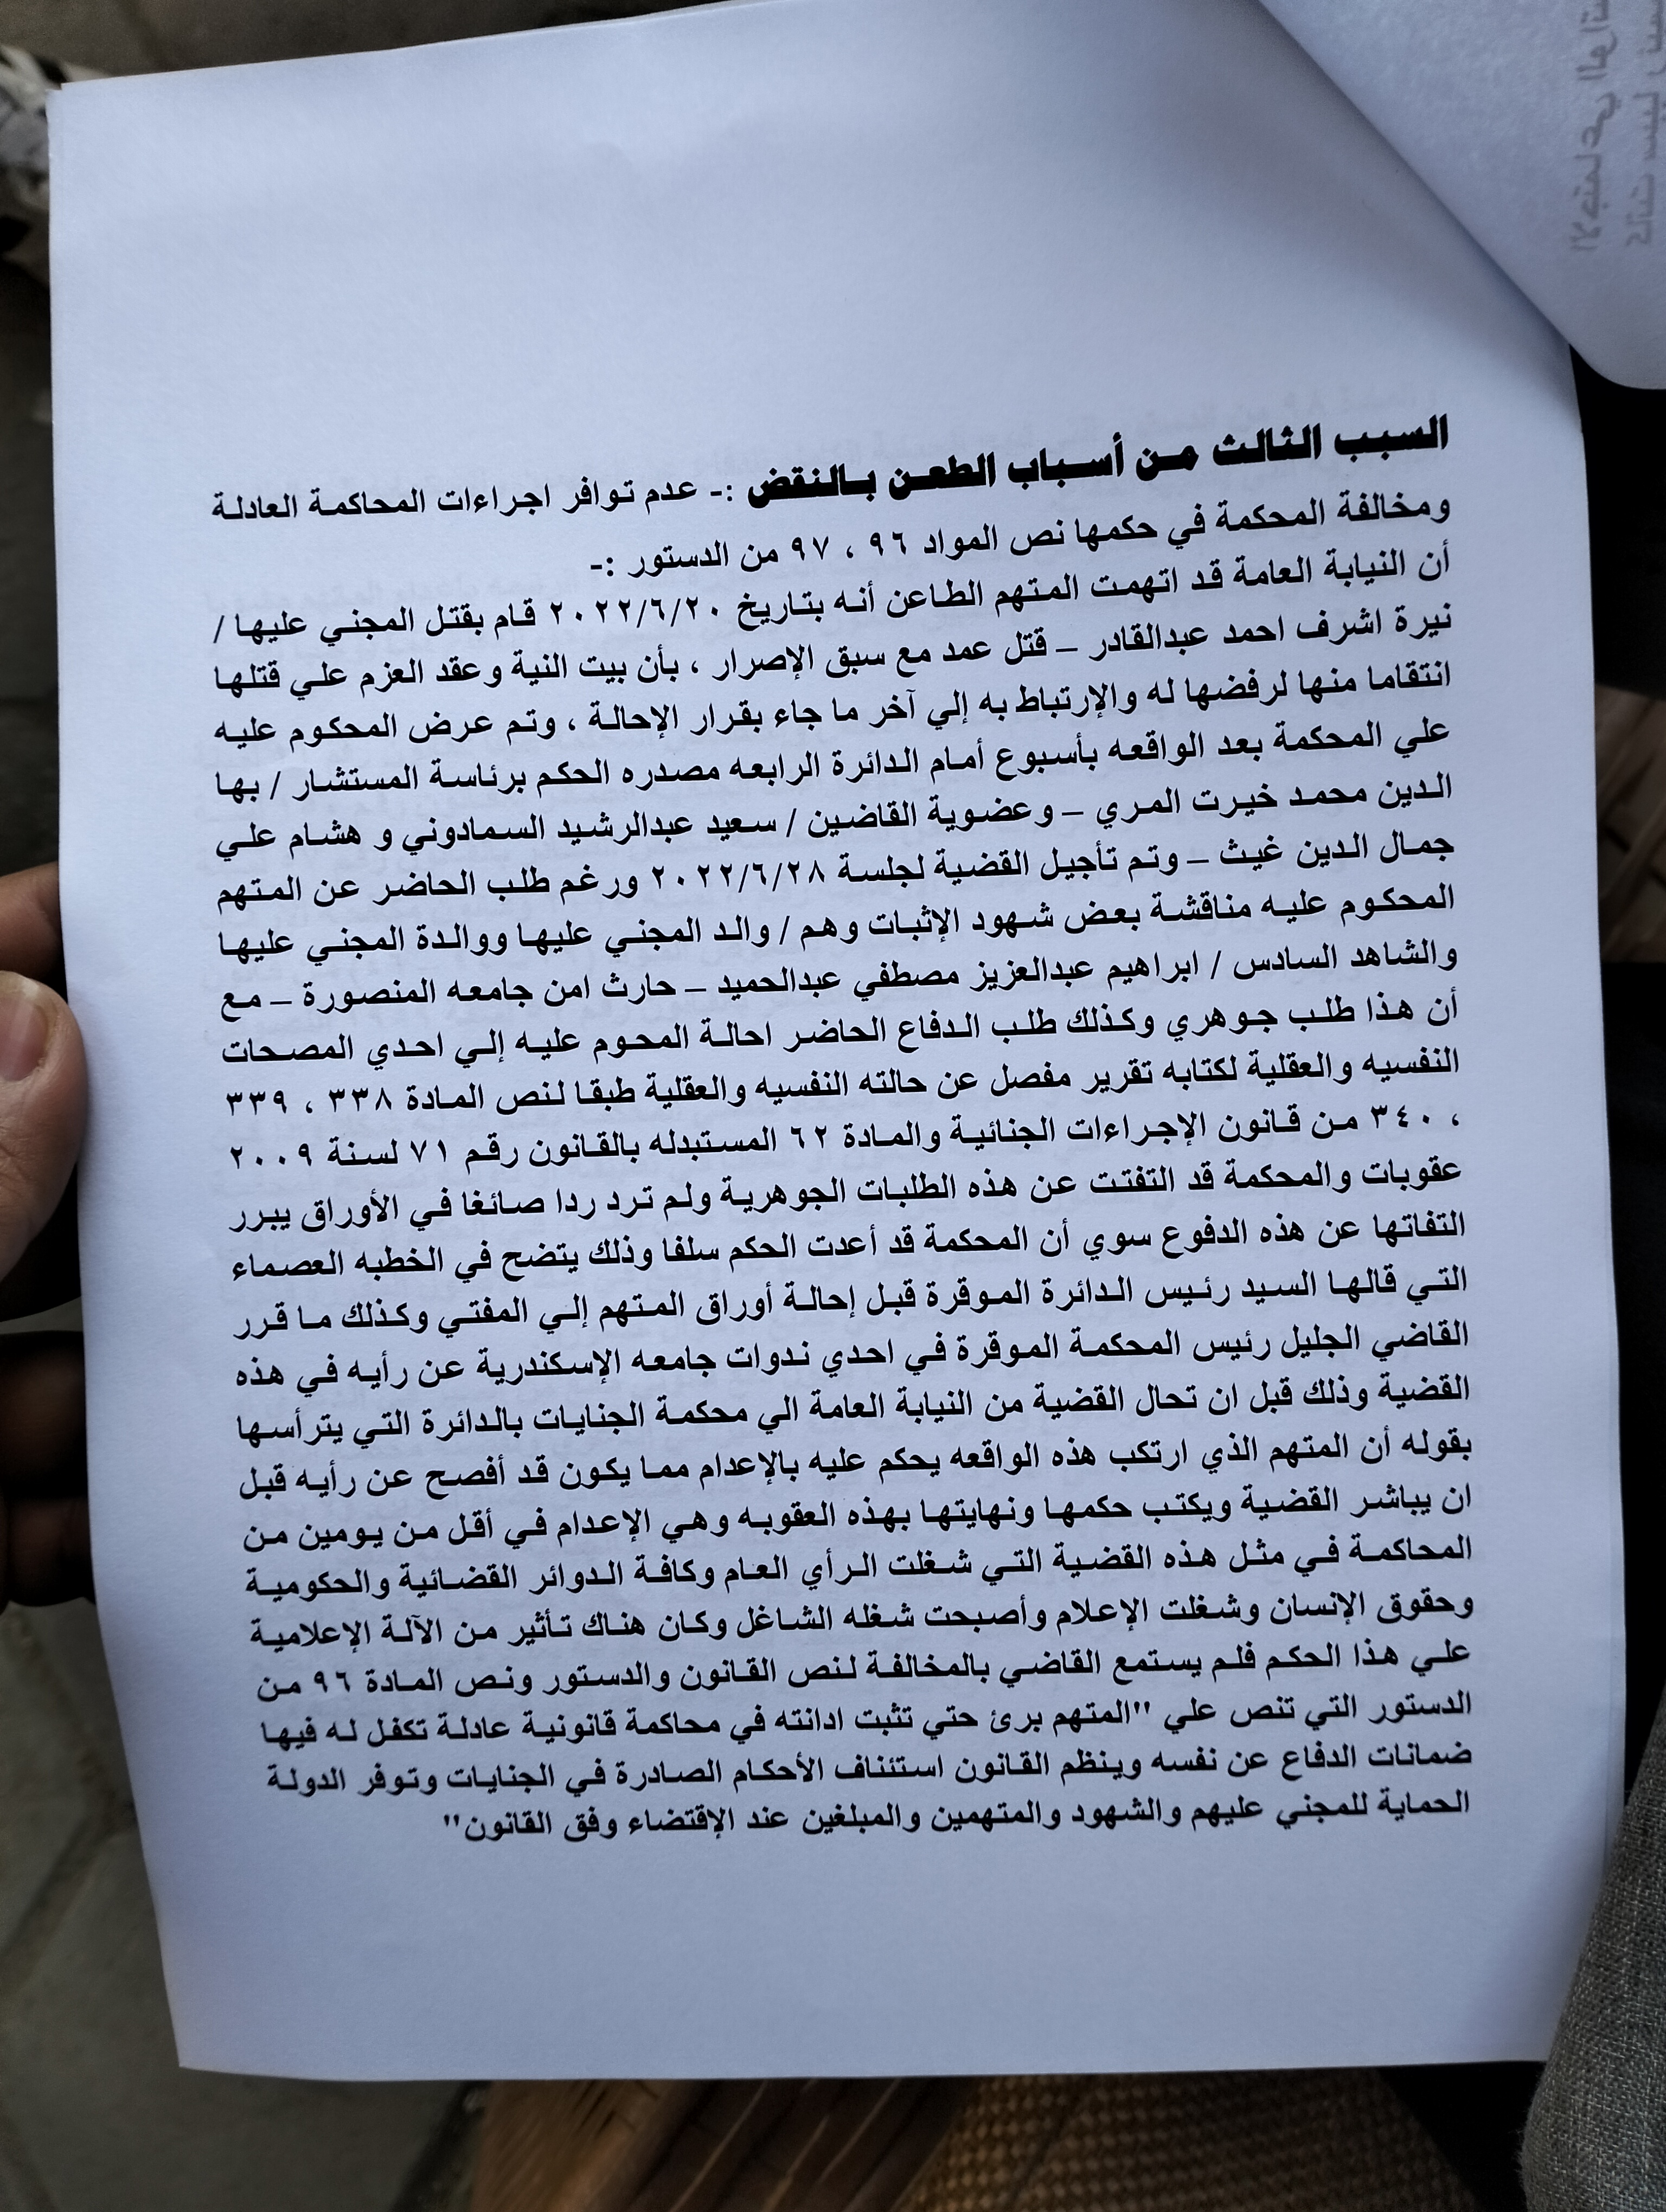 السبب الثالث من أسباب الطعن بالنقض :- عدم توافر اجراءات المحاكمة العادلة
ومخالفة المحكمة في حكمها نص المواد ٩٦ ، ٩٧ من الدستور :-
أن النيابة العامة قد اتهمت المتهم الطاعن أنه بتاريخ ٢٠٢٢/٦/٢٠ قام بقتل المجني عليها /
نيرة اشرف احمد عبدالقادر – قتل عمد مع سبق الإصرار ، بأن بيت النية وعقد العزم علي قتلها
انتقاما منها لرفضها له والإرتباط به إلي آخر ما جاء بقرار الإحالة ، وتم عرض المحكوم عليه
علي المحكمة بعد الواقعه بأسبوع أمام الدائرة الرابعه مصدره الحكم برئاسة المستشار / بها
الدين محمد خيرت المري – وعضوية القاضين / سعيد عبدالرشيد السمادوني و هشام علي
جمال الدين غيث – وتم تأجيل القضية لجلسة ٢٠٢٢/٦/٢٨ ورغم طلب الحاضر عن المتهم
المحكوم عليه مناقشة بعض شهود الإثبات وهم / والد المجني عليها ووالدة المجني عليها
والشاهد السادس / ابراهيم عبدالعزيز مصطفي عبدالحميد – حارث امن جامعه المنصورة – مع
أن هذا طلب جوهري وكذلك طلب الدفاع الحاضر احالة المحوم عليه إلي احدي المصحات
النفسيه والعقلية لكتابه تقرير مفصل عن حالته النفسيه والعقلية طبقا لنص المادة ٣٣٨ ، ٣٣٩
، ٣٤٠ من قانون الإجراءات الجنائية والمادة ٦٢ المستبدله بالقانون رقم ٧١ لسنة ٢٠٠٩
عقوبات والمحكمة قد التفتت عن هذه الطلبات الجوهرية ولم ترد ردا صائغا في الأوراق يبرر
التفاتها عن هذه الدفوع سوي أن المحكمة قد أعدت الحكم سلفا وذلك يتضح في الخطبه العصماء
التي قالها السيد رئيس الدائرة الموقرة قبل إحالة أوراق المتهم إلي المفتي وكذلك ما قرر
القاضي الجليل رئيس المحكمة الموقرة في احدي ندوات جامعه الإسكندرية عن رأيه في هذه
القضية وذلك قبل ان تحال القضية من النيابة العامة الي محكمة الجنايات بالدائرة التي يترأسها
بقوله أن المتهم الذي ارتكب هذه الواقعه يحكم عليه بالإعدام مما يكون قد أفصح عن رأيه قبل
ان يباشر القضية ويكتب حكمها ونهايتها بهذه العقوبه وهي الإعدام في أقل من يومين من
المحاكمة في مثل هذه القضية التي شغلت الرأي العام وكافة الدوائر القضائية والحكومية
وحقوق الإنسان وشغلت الإعلام وأصبحت شغله الشاغل وكان هناك تأثير من الآلة الإعلامية
علي هذا الحكم فلم يستمع القاضي بالمخالفة لنص القانون والدستور ونص المادة ٩٦ من
الدستور التي تنص علي "المتهم برئ حتي تثبت ادانته في محاكمة قانونية عادلة تكفل له فيها
ضمانات الدفاع عن نفسه وينظم القانون استئناف الأحكام الصادرة في الجنايات وتوفر الدولة
الحماية للمجني عليهم والشهود والمتهمين والمبلغين عند الإقتضاء وفق القانون"